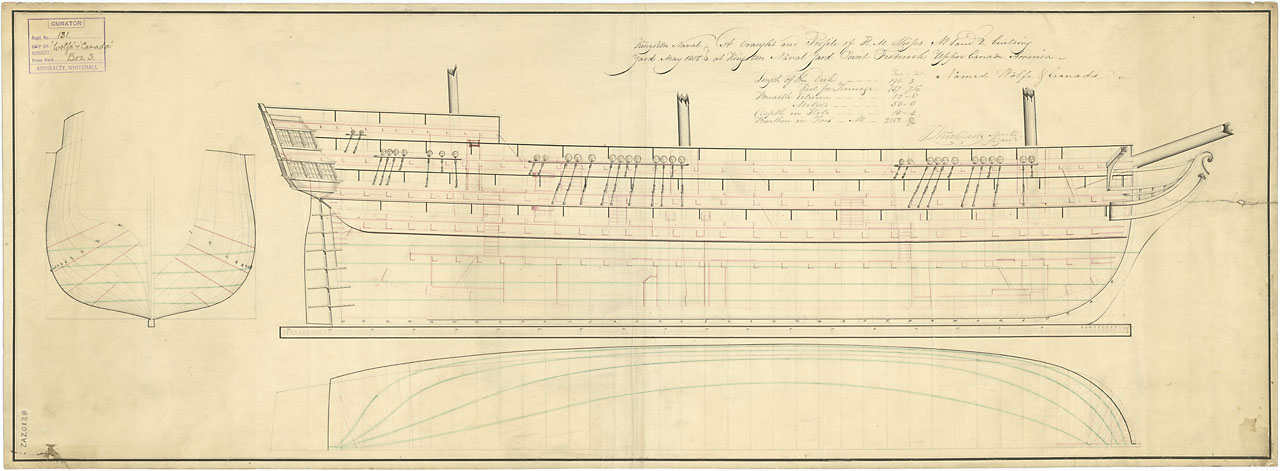 CURATOR
Regd. No. 131
SHIP OR SUBJECT "Wolfe" & "Canada"
Box 3
ADMIRALTY, WHITEHALL
Kingston Naval
Yard May 1815
A Draught and Profile of H. M. Ships No. 1 and 2, building
at Kingston Naval Yard Point Frederick Upper Canada America
Named Wolfe & Canada
Length of the Deck
Keel for Tonnage
Breadth Extreme
Moulded 50-0
Depth in Hold 18-
Burthen in Tons - No 2152
ZAZ0138